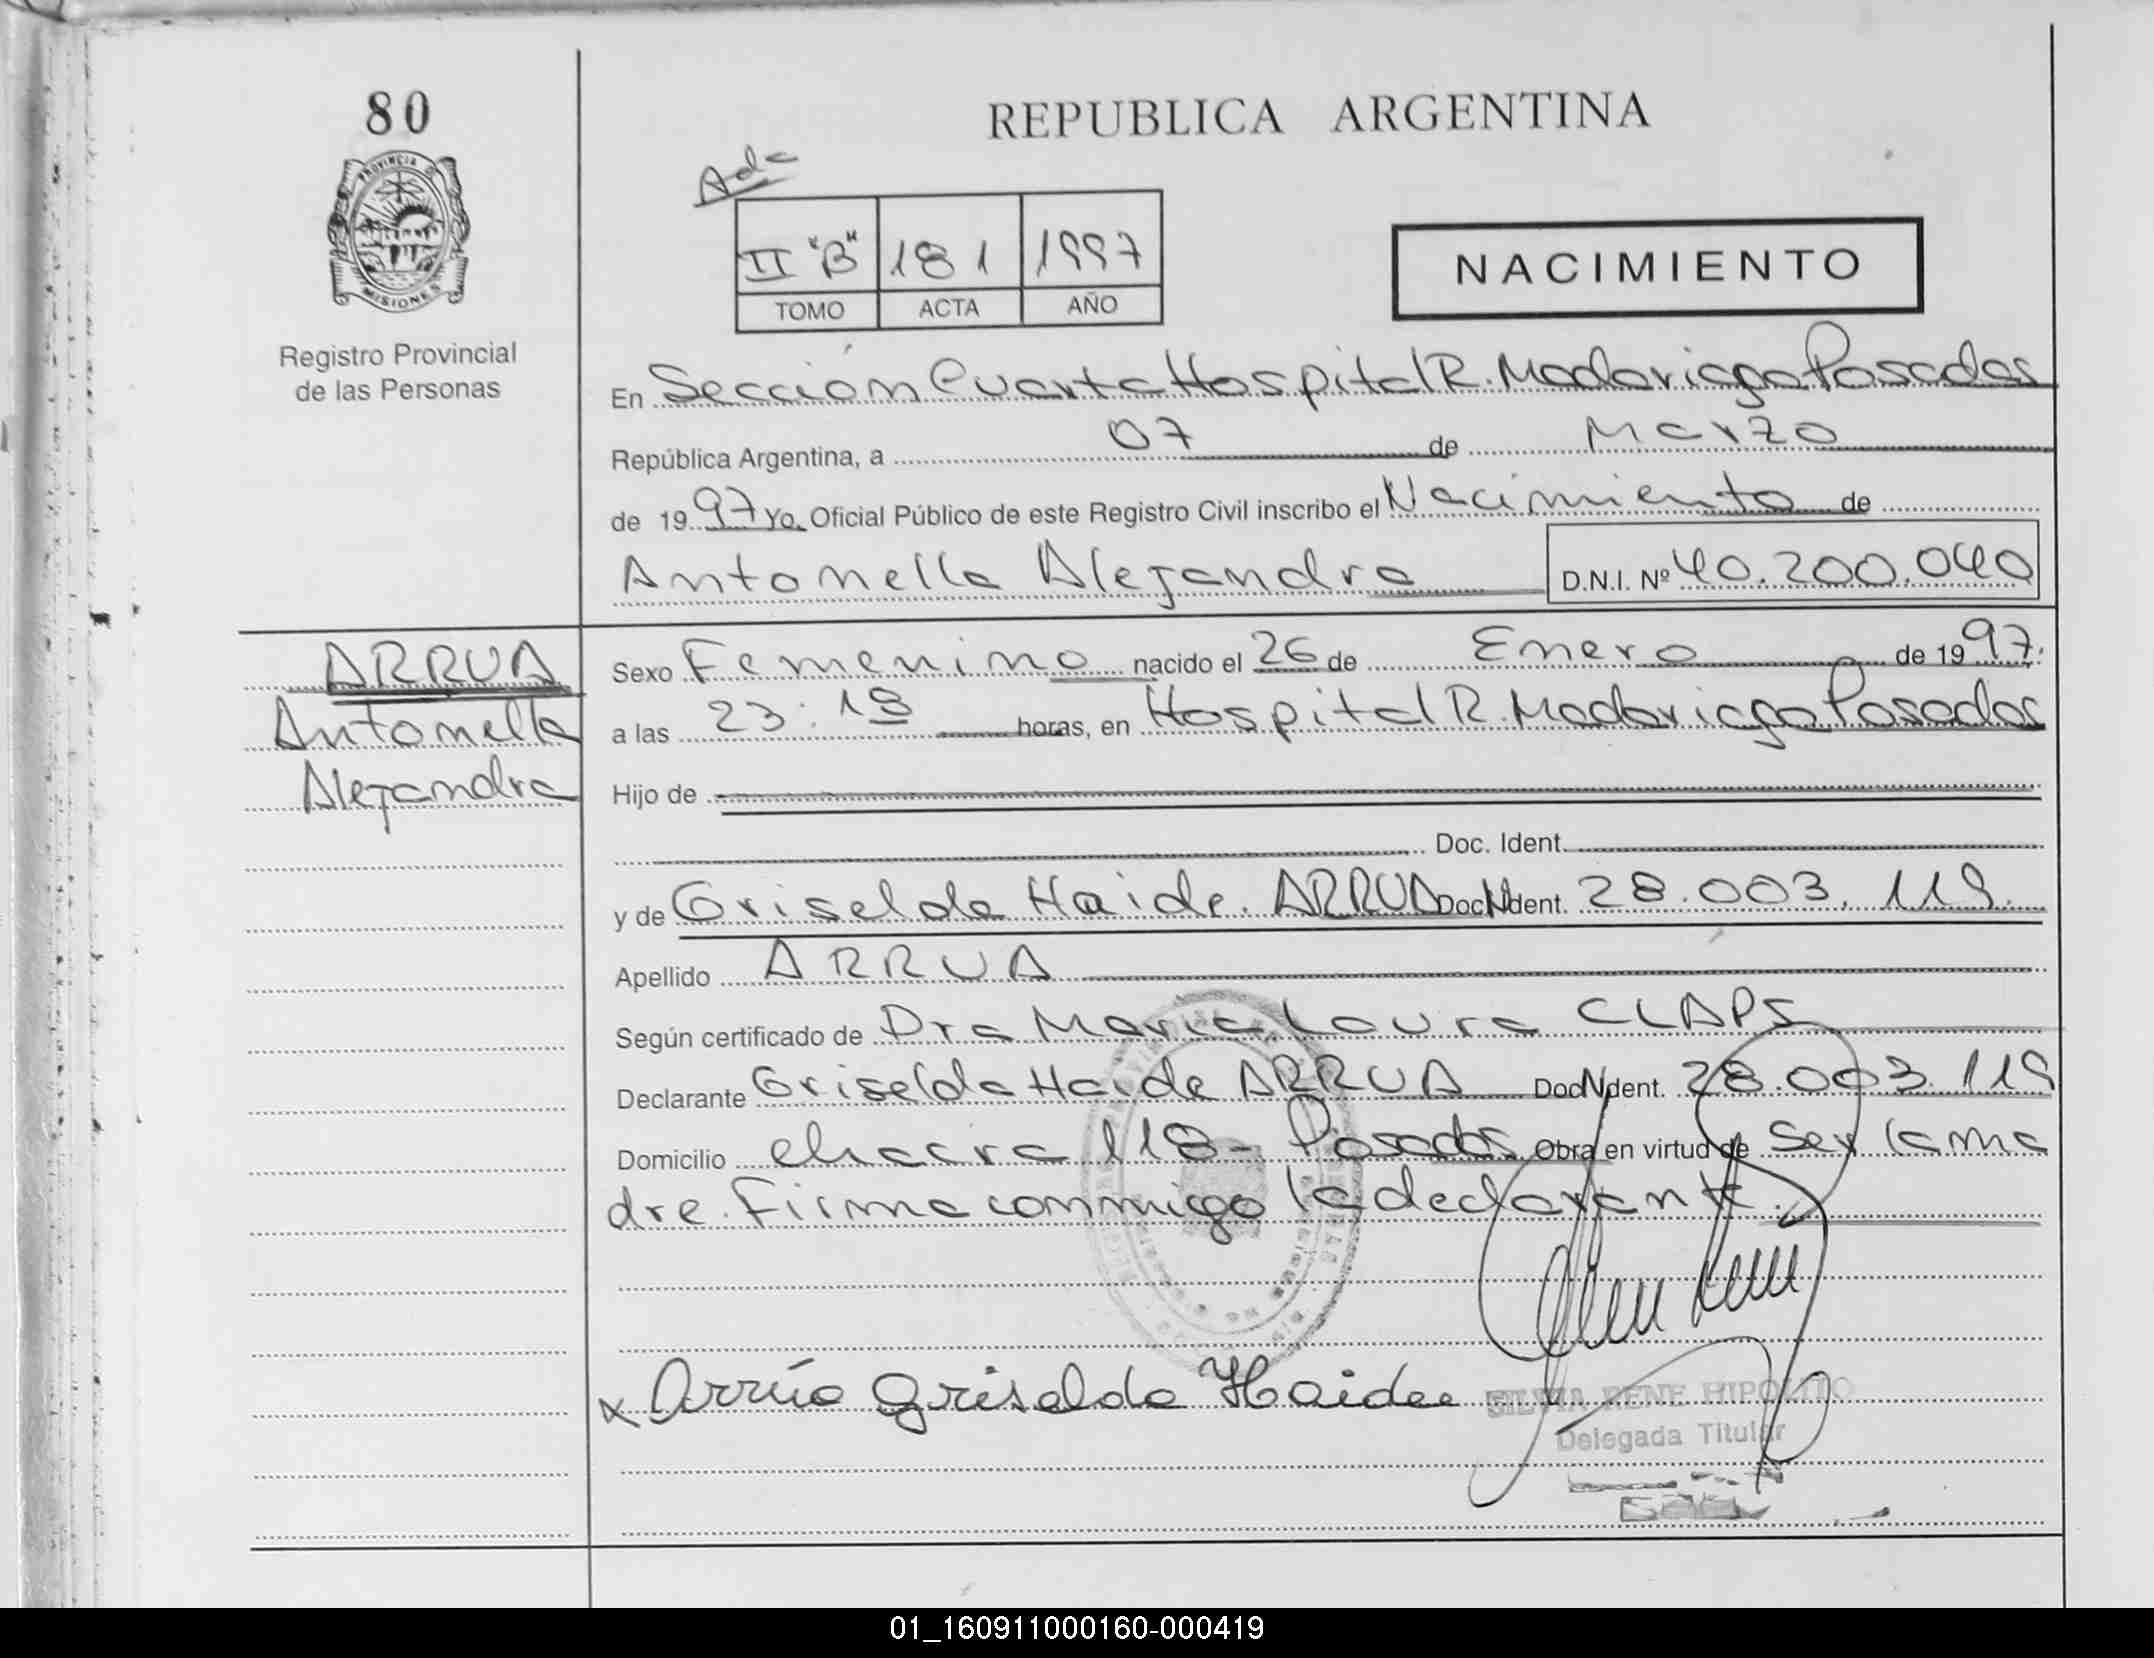 80
REPUBLICA ARGENTINA
PROVINCIA D
MISIONES
Ad-c
II "B" 181 1997
TOMO ACTA AÑO
NACIMIENTO
Registro Provincial
de las Personas
En Sección Cuarta Hospital R. Madariaga Posadas
República Argentina, a 07 de Marzo
de 1997 Yo, Oficial Público de este Registro Civil inscribo el Nacimiento de
Antonella Alejandra D.N.I. Nº 40.200.040
ARRUA
Antonella
Alejandra
Sexo Femenino nacido el 26 de Enero de 1997.
a las 23:18 horas, en Hospital R. Madariaga Posadas
Hijo de
Doc. Ident.
y de Griselda Haide. ARRUA Doc. Ident. 28.003.119.
Apellido ARRUA
Según certificado de Dra Maria Laura CLAPS
Declarante Griselda Haide ARRUA Doc. Ident. 28.003.119
Domicilio chacra 118 - Posadas Obra en virtud de Ser la ma
dre. Firma conmigo la declarante.
x Arrúa Griselda Haidee
SILVIA RENE HIPOLITO
Delegada Titular
01_160911000160-000419